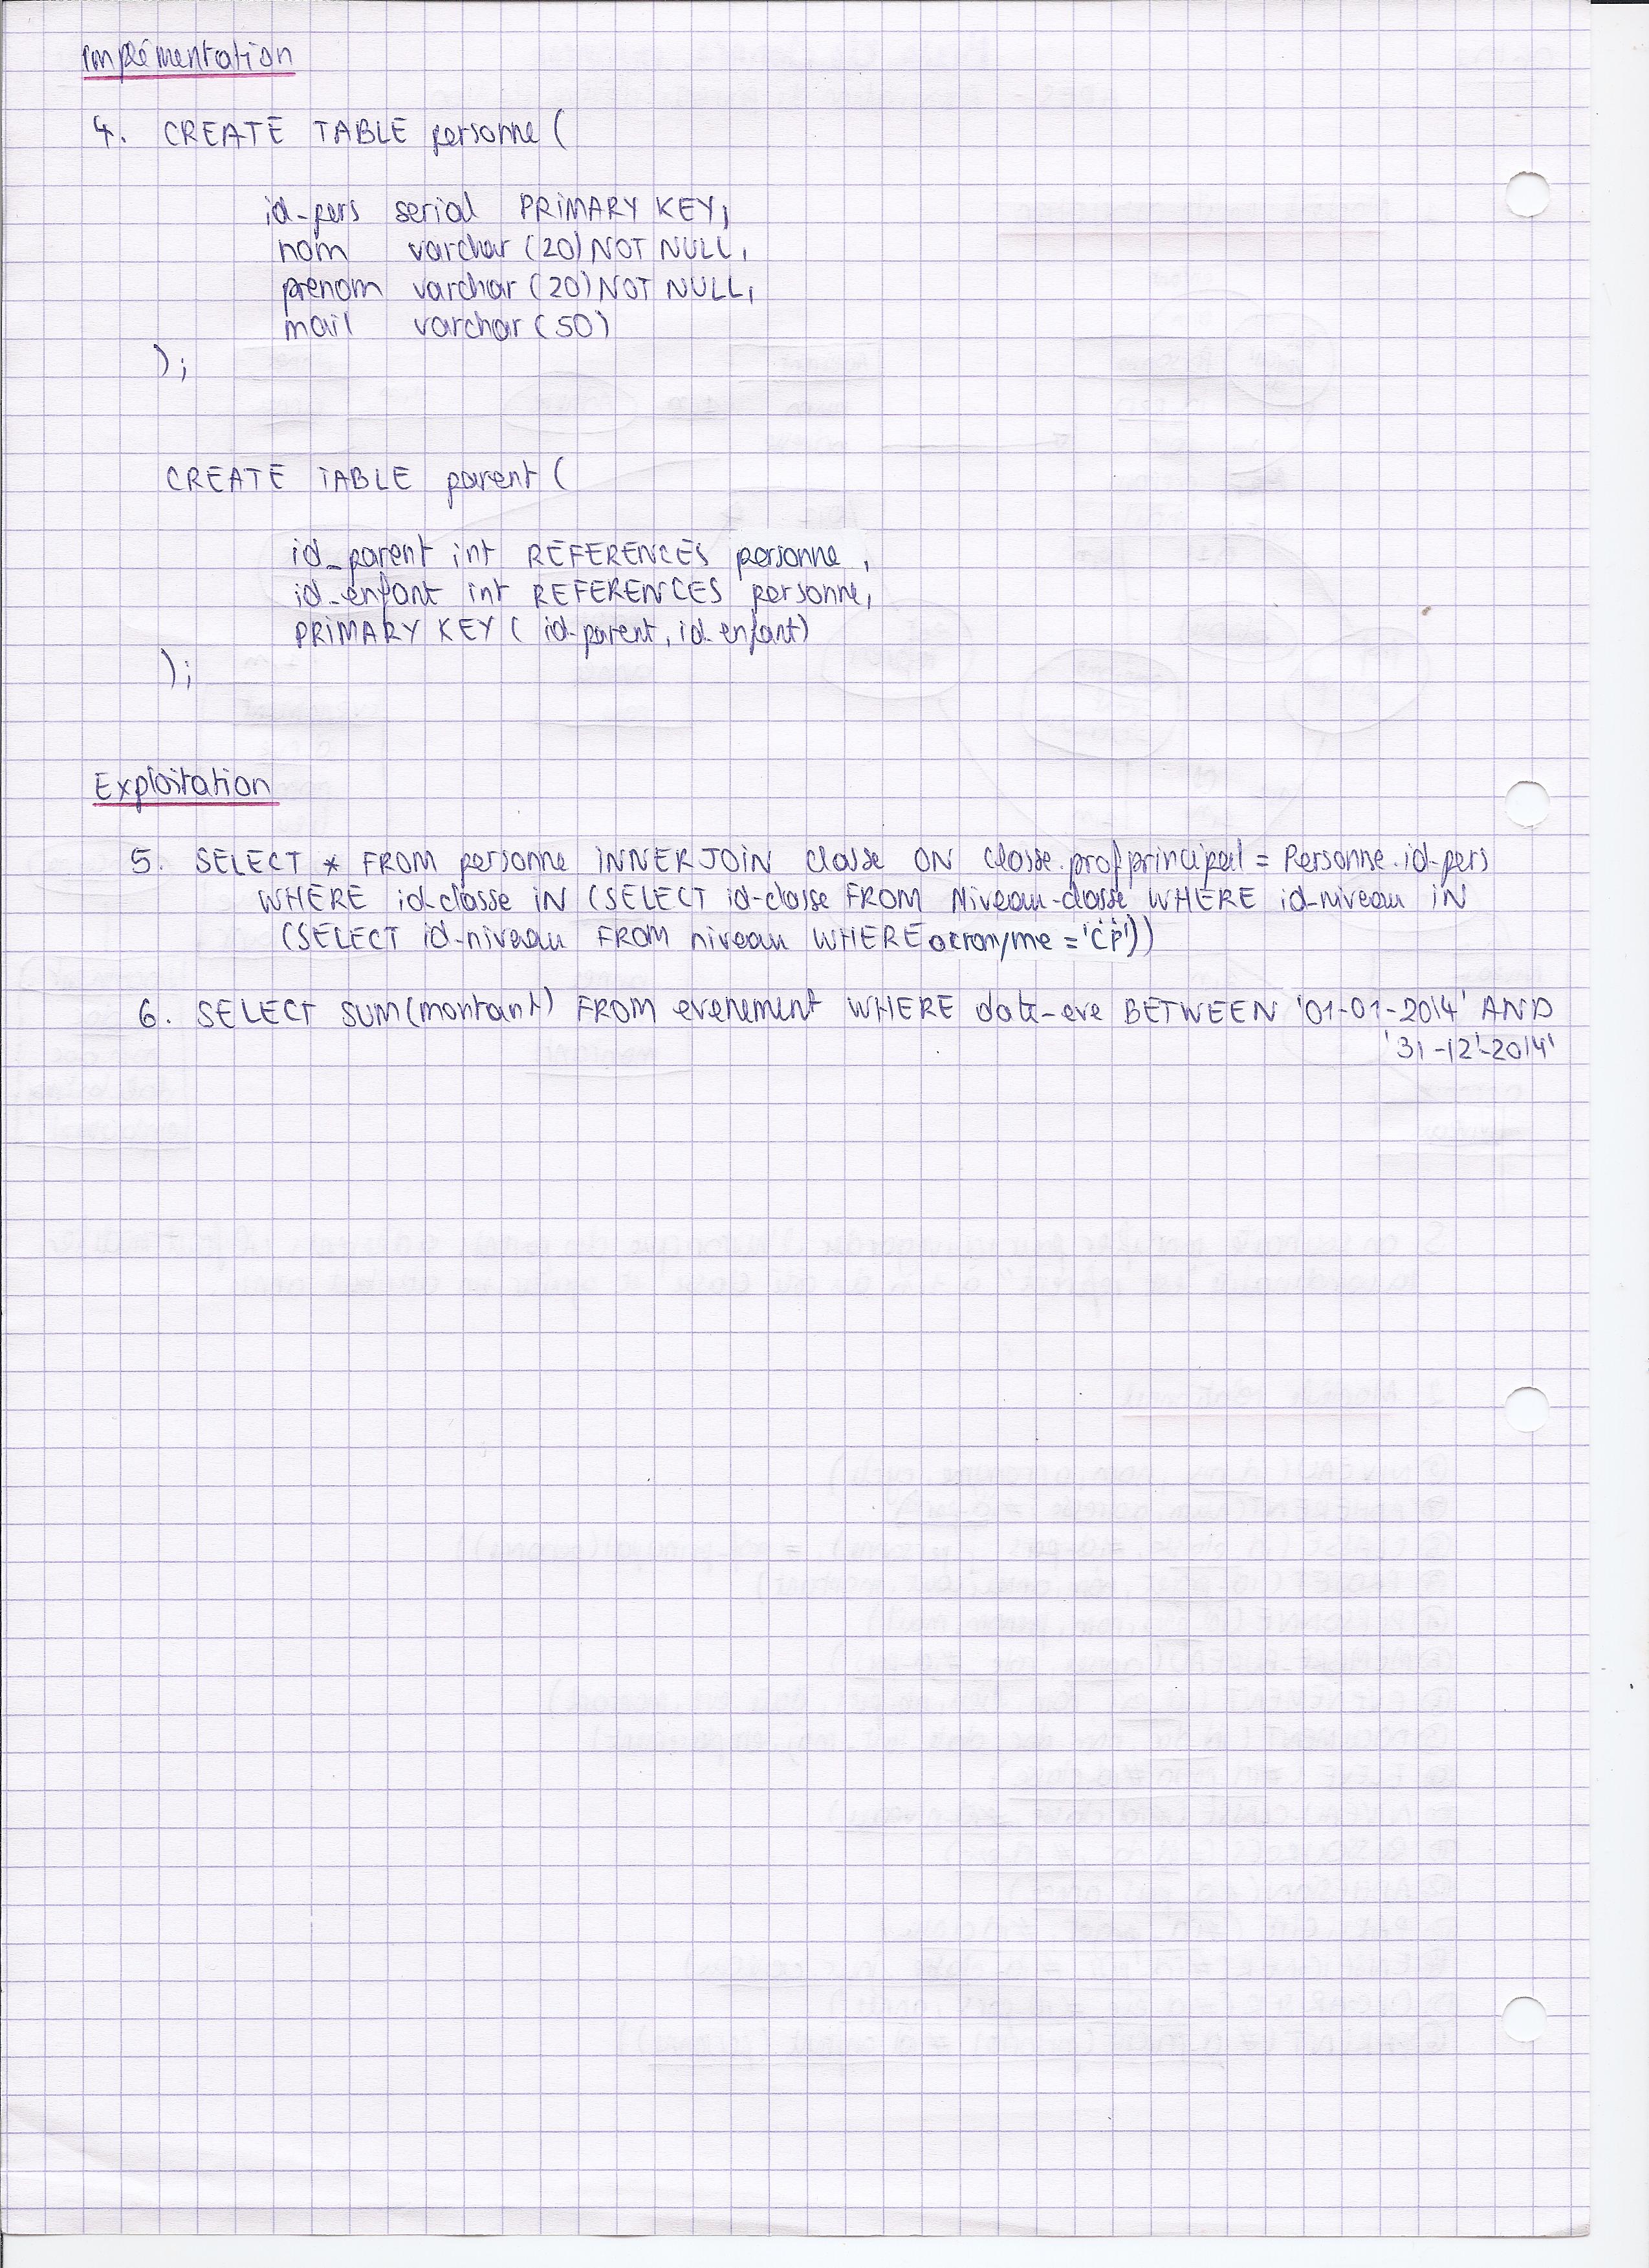 Implémentation
4. CREATE TABLE personne (
id-pers serial PRIMARY KEY,
nom varchar (20) NOT NULL,
prenom varchar (20) NOT NULL,
mail varchar (50)
);
CREATE TABLE parent (
id_parent int REFERENCES personne ,
id_enfant int REFERENCES personne,
PRIMARY KEY ( id-parent, id_enfant)
);
Exploitation
5. SELECT * FROM personne INNER JOIN classe ON classe.profprincipal = Personne.id-pers
WHERE id-classe IN (SELECT id-classe FROM Niveau-classe WHERE id-niveau IN
(SELECT id-niveau FROM niveau WHERE acronyme = 'CP'))
6. SELECT SUM(montant) FROM evenement WHERE date-eve BETWEEN '01-01-2014' AND
'31-12-2014'